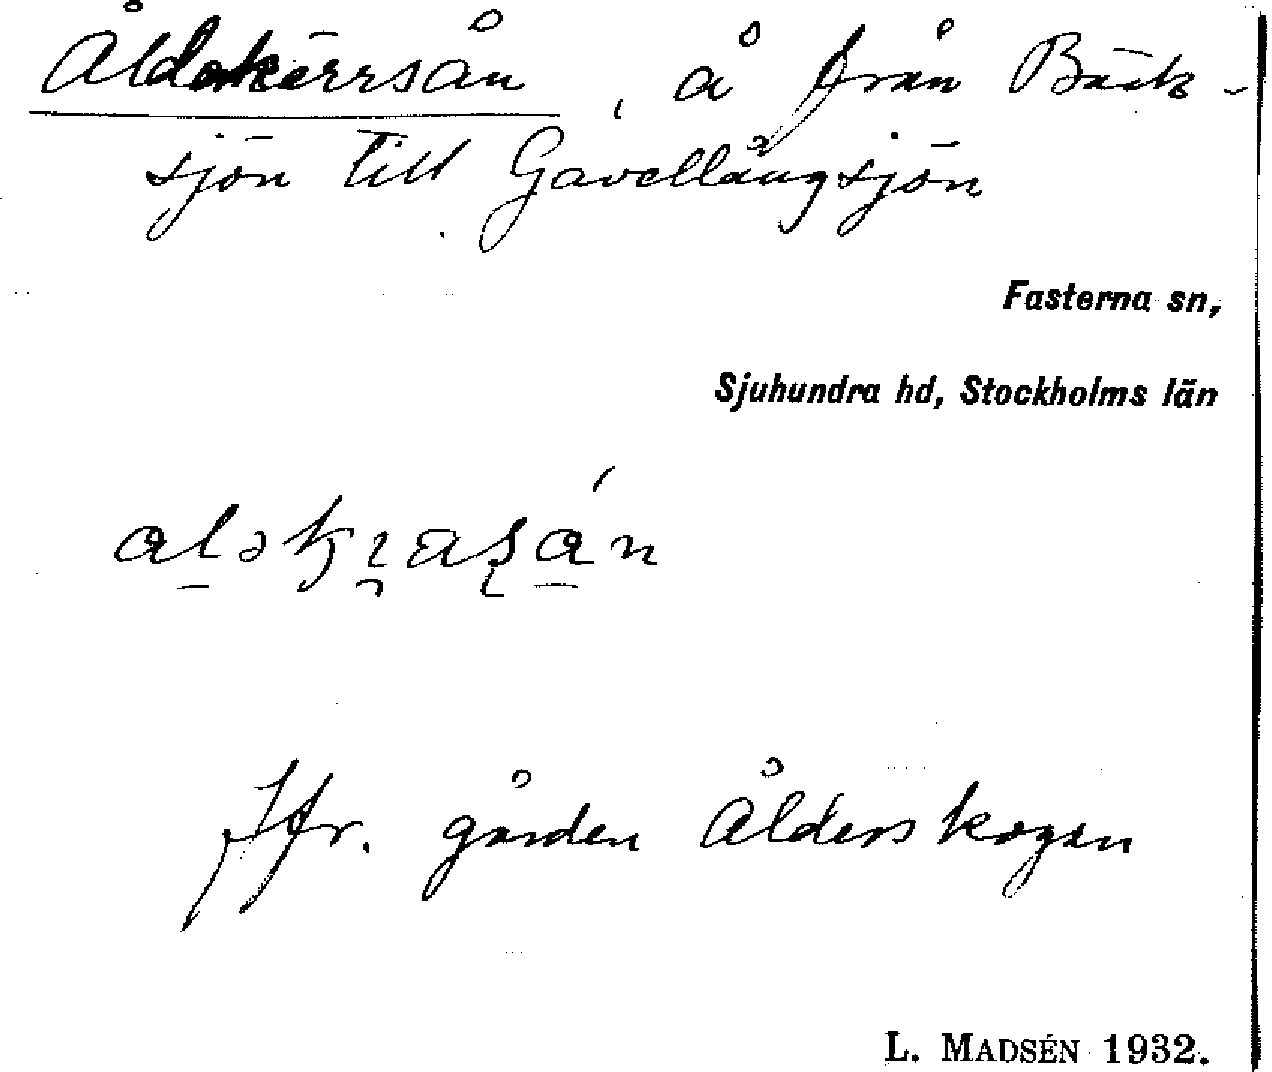 Åldakärrsån, å från Bäck-
sjön till Gavellångsjön
Fasterna sn,
Sjuhundra hd, Stockholms län
Jfr. gården Ålderskogen
L. MADSÉN 1932.